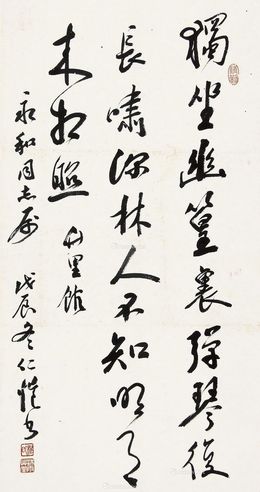 獨坐幽篁裏彈琴復
長嘯深林人不知明月
来相照 竹里館
永和同志屬
戊辰冬仁愷書